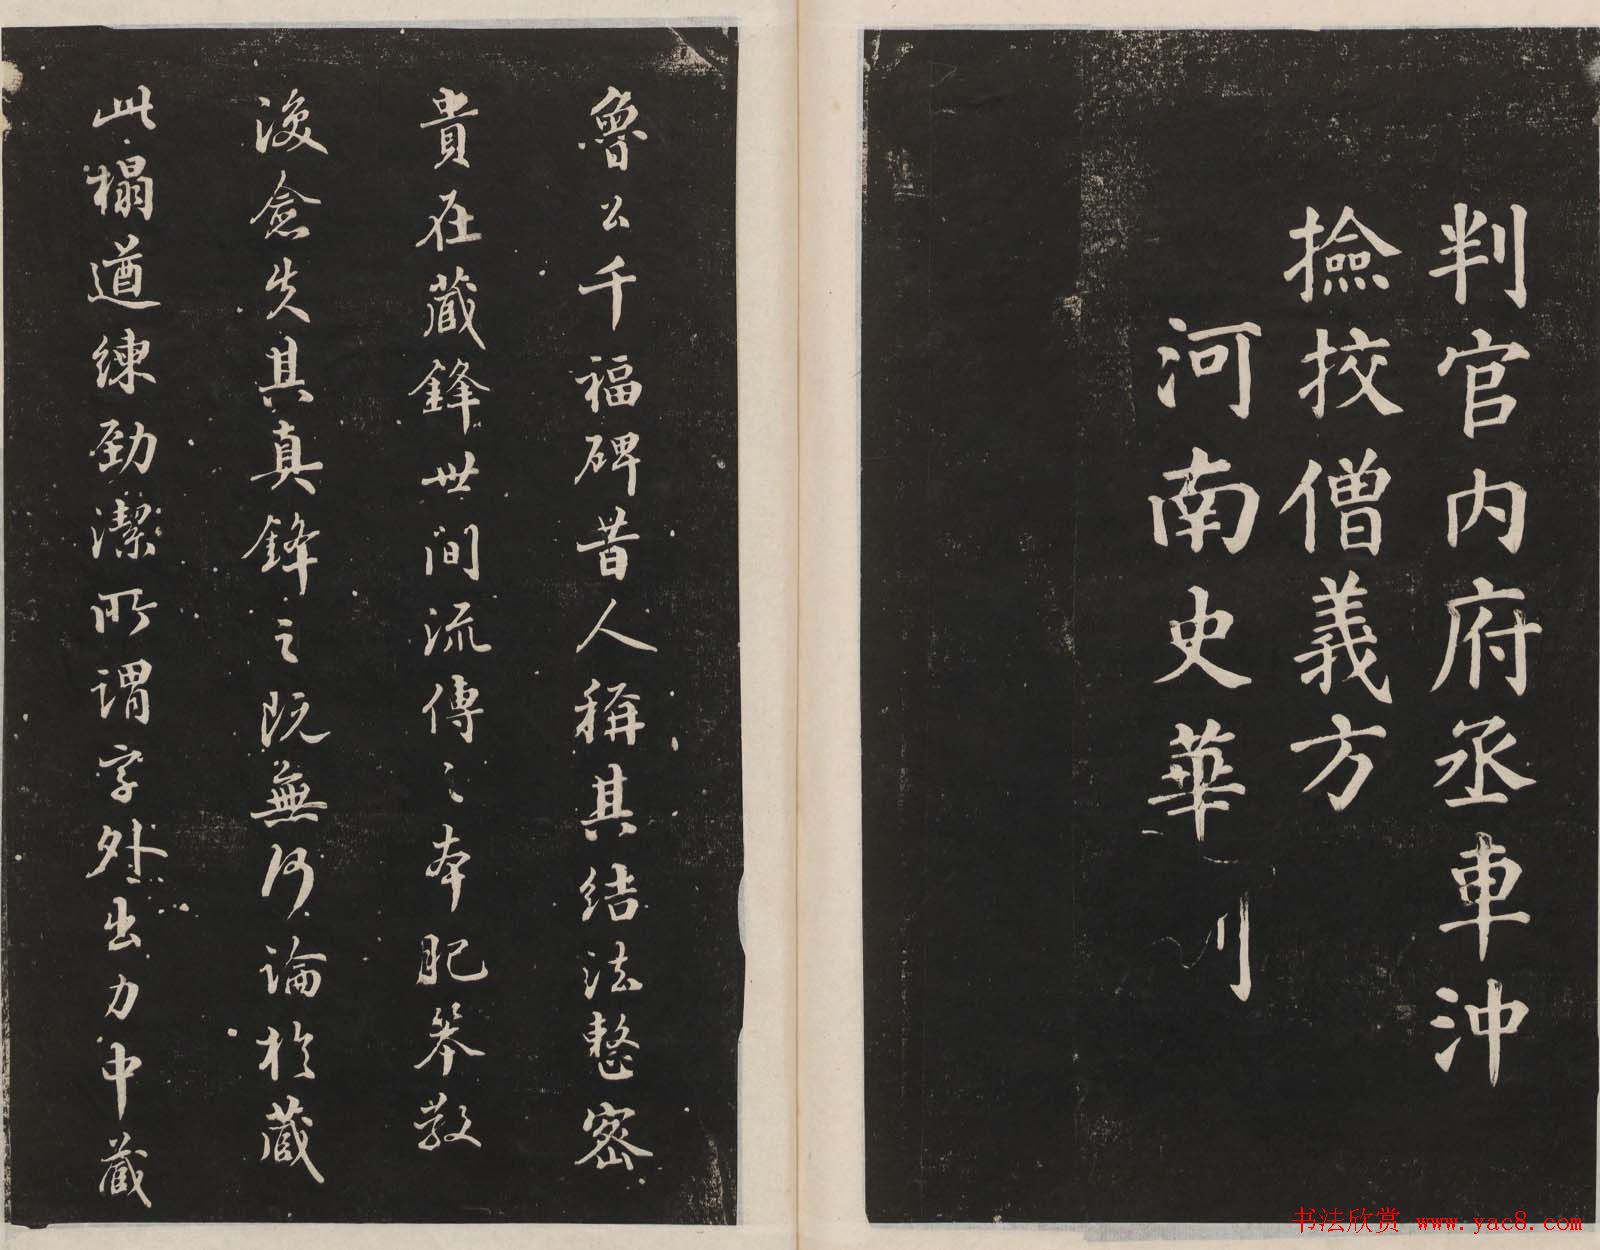 判官内府丞車沖
撿挍僧義方
河南史華
魯公千福碑昔人稱其結法整密
貴在藏鋒世間流傳之本肥笨散
渙僉失其真鋒之既無何論於藏
此榻遒練勁潔所謂字外出力中藏
书法欣赏 www.yac8.com